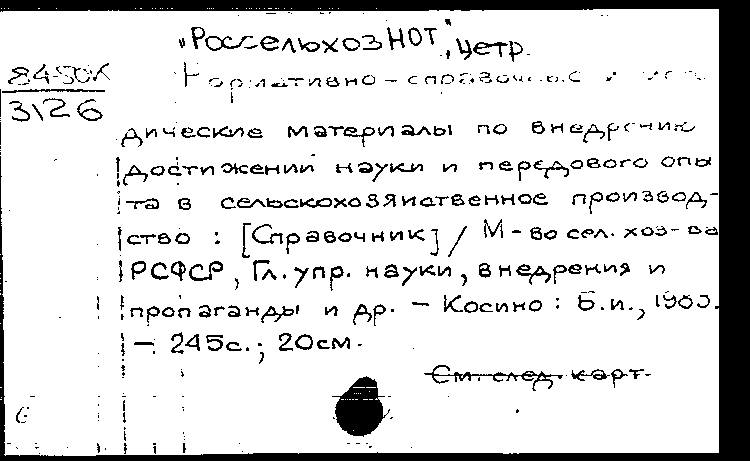 „РоссельхозНОТ", цетр.
84-50K
3126
Нормативно-справочн.
дические материалы по внедрению
достижений науки и передового опы
та в сельскохозяйственное производ-
ство : [Справочник] / М-во сел. хоз-ва
РСФСР, Гл. упр. науки, внедрения и
пропаганды и др. – Косино : Б.и.,
– 245с.; 20см.
См. след. карт.